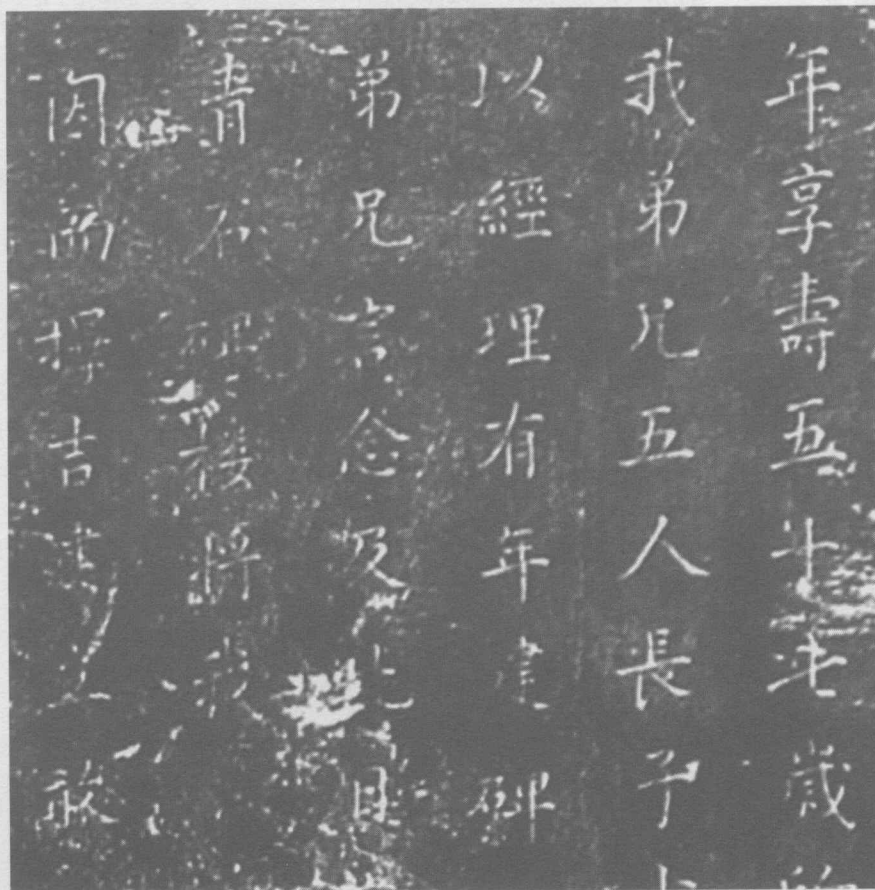 年享壽五十七歲
我弟兄五人長子
以經理有年建碑
弟兄言念及此目
青石碑接將我
因而擇吉
敬